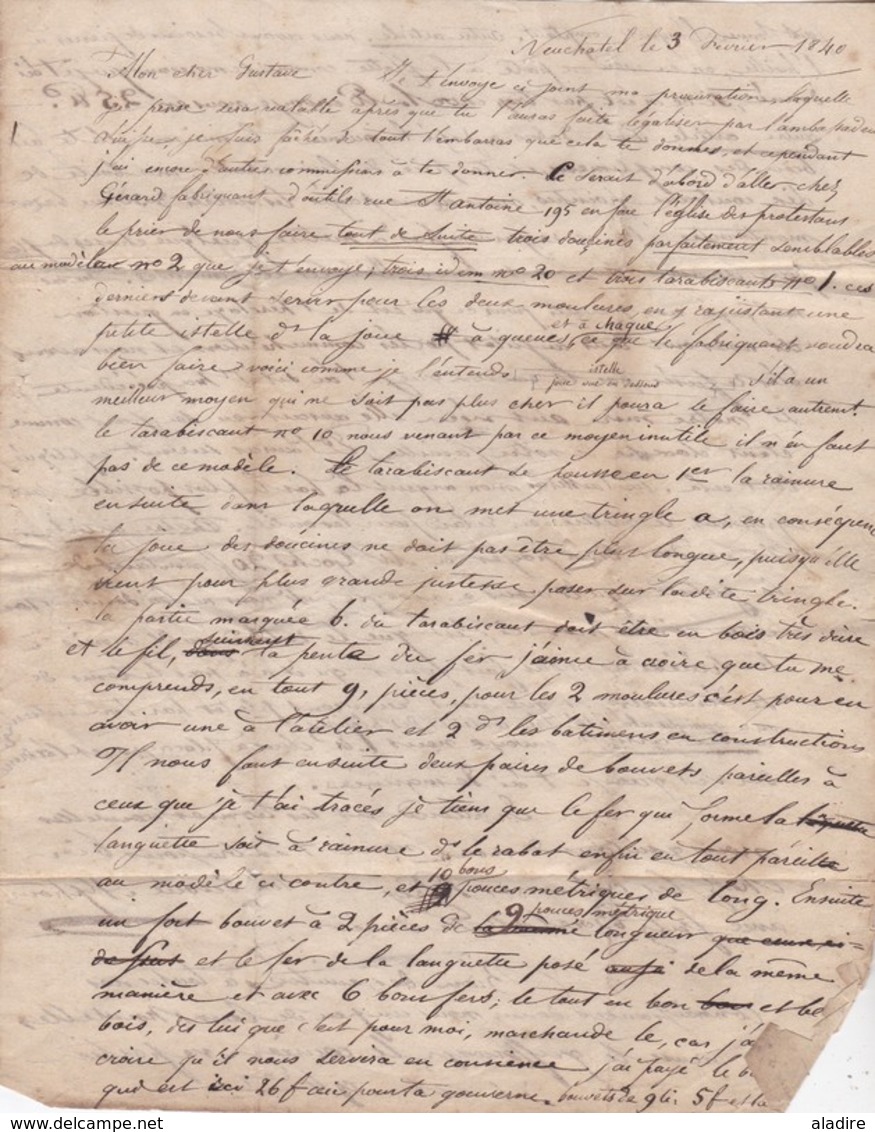 Neuchatel le 3 Fevrier 1840
Mon cher Gustave Je t'envoye ci joint ma procuration, laquelle
je pense sera valable après que tu l'auras faite légaliser par l'ambassadeur
je suis fâché de tout l'embarras que cela te donnes, et cependant
j'ai encore d'autres commissions à te donner Ce serait d'abord d'aller chez
Gérard fabriquant d'outils rue St antoine 195 en face l'église des protestans
le prier de nous faire tout de suite trois doucines parfaitement semblables
au modèle no 2 que je t'envoye, trois idem no 20 et trois tarabiscauts no 1. ces
derniers devant servir pour les deux moulures, en y rajustant une
petite istelle ds la joue à queues et à chaque ce que le fabriquant voudra
bien faire voici comme je l'entends istelle joue vue en dessous s'il a un
meilleur moyen qui ne soit pas plus cher il poura le faire autremt.
le tarabiscaut no 10 nous venant par ce moyen inutile il n'en faut
pas de ce modèle. Le tarabiscaut se pousse en 1er la rainure
ensuite dans laquelle on met une tringle a, en conséquence
la joue des doucines ne doit pas être plus longue, puisqu'elle
vient pour plus grande justesse poser sur ladite tringle.
la partie marquée b. du tarabiscaut doit être en bois très dure
et le fil, suivant la pente du fer j'aime à croire que tu me
comprends, en tout 9, pièces, pour les 2 moulures c'est pour en
avoir une à l'atelier et 2 ds les batimens en constructions
Il nous faut ensuite deux paires de bouvets pareilles à
ceux que j'ai t'ai tracés je tiens que le fer qui forme la
languette soit à rainure ds le rabat enfin en tout pareille
au modèle ci contre, et 10 bons pouces métriques de long. Ensuite
un fort bouvet à 2 pièces de 9 pouces métrique longueur que ceux ci-
dessus et le fer de la languette posé aussi de la même
manière et avec 6 bons fers; le tout en bon et be
bois, dis lui que c'est pour moi, marchande le, car j'a
croire qu'il nous servira en consience j'ai payé le b
qui est ici 26 f ai pour ta gouverne. bouvets de 9 li. 5 f et la
aladire